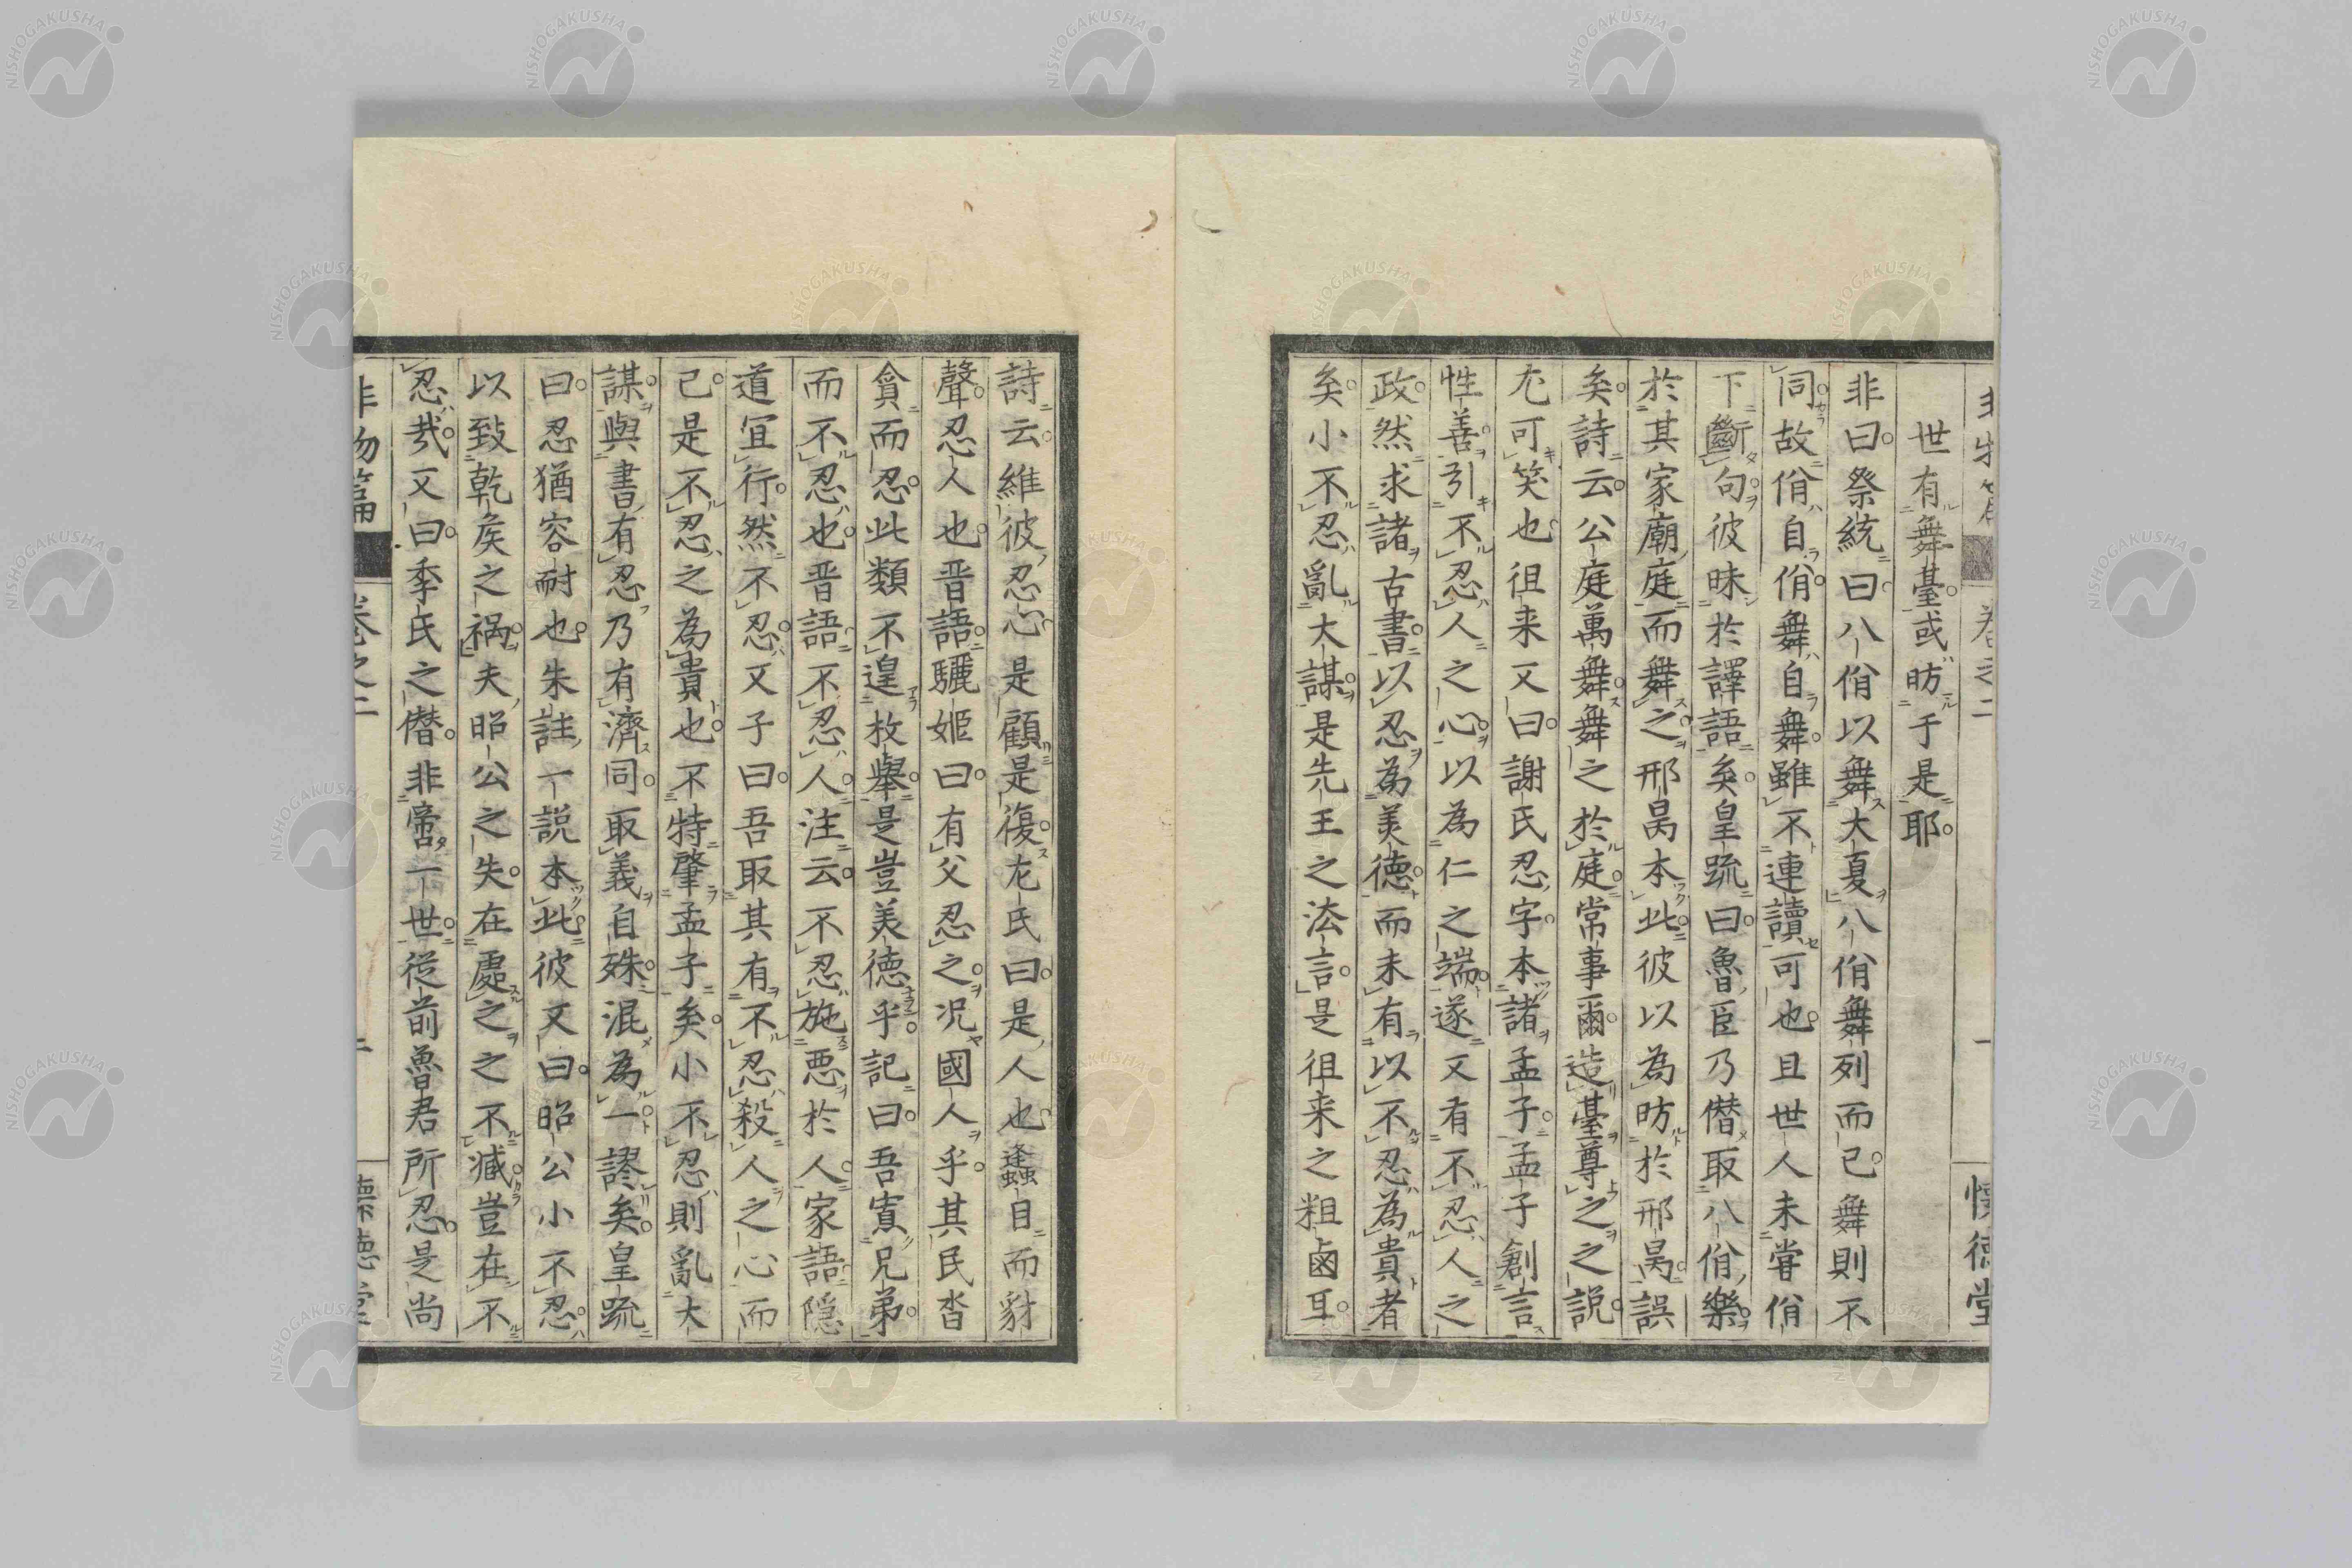 世有舞臺或昉于是耶
非曰祭統曰八佾以舞大夏八佾舞列而已舞則不
同故佾自佾舞自舞雖不連讀可也且世人未甞佾
下斷句彼昧於譯語矣皇疏曰魯臣乃僭取八佾樂
於其家廟庭而舞之邢昺本此彼以為昉於邢昺誤
矣詩云公庭萬舞舞之於庭常事爾造臺尊之之說
尤可笑也徂来又曰謝氏忍字本諸孟子孟子創言
性善引不忍人之心以為仁之端遂又有不忍人之
政然求諸古書以忍為美德而未有以不忍為貴者
矣小不忍亂大謀是先王之法言是徂来之粗鹵耳
詩云維彼忍心是顧是復左氏曰是人也蠭目而豺
聲忍人也晋語驪姬曰有父忍之况國人乎其民沓
貪而忍此類不遑枚舉是豈美德乎記曰吾實兄弟
而不忍也晋語不忍人注云不忍施惡於人家語隱
道宜行然不忍又子曰吾取其有不忍殺人之心而
已是不忍之為貴也不特肇孟子矣小不忍則亂大
謀與書有忍乃有濟同取義自殊混為一謬矣皇疏
曰忍猶容耐也朱註一說本此彼又曰昭公小不忍
以致乾矦之禍夫昭公之失在處之之不臧豈在不
忍哉又曰季氏之僭非啻一世從前魯君所忍是尚
非物篇
卷之二
懷德堂